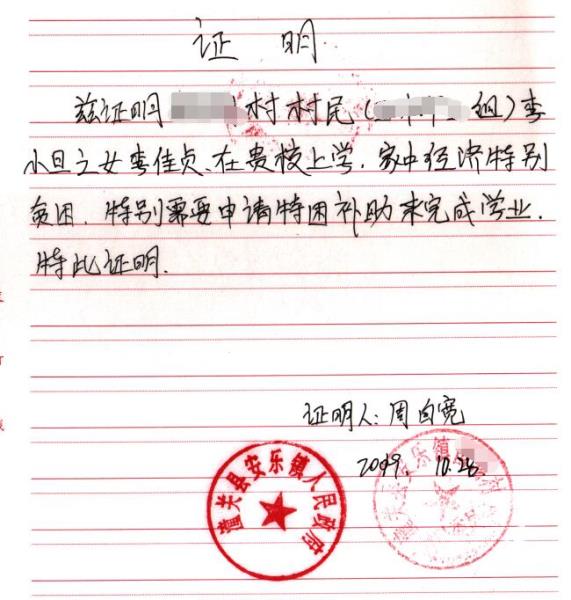 证 明
兹证明 村村民（ 组）李
小旦之女李佳贞、在贵校上学，家中经济特别
贫困．特别需要申请特困补助来完成学业．
特此证明．
证明人：周自宽
10.28
潼关县安乐镇人民政府
潼关县安乐镇